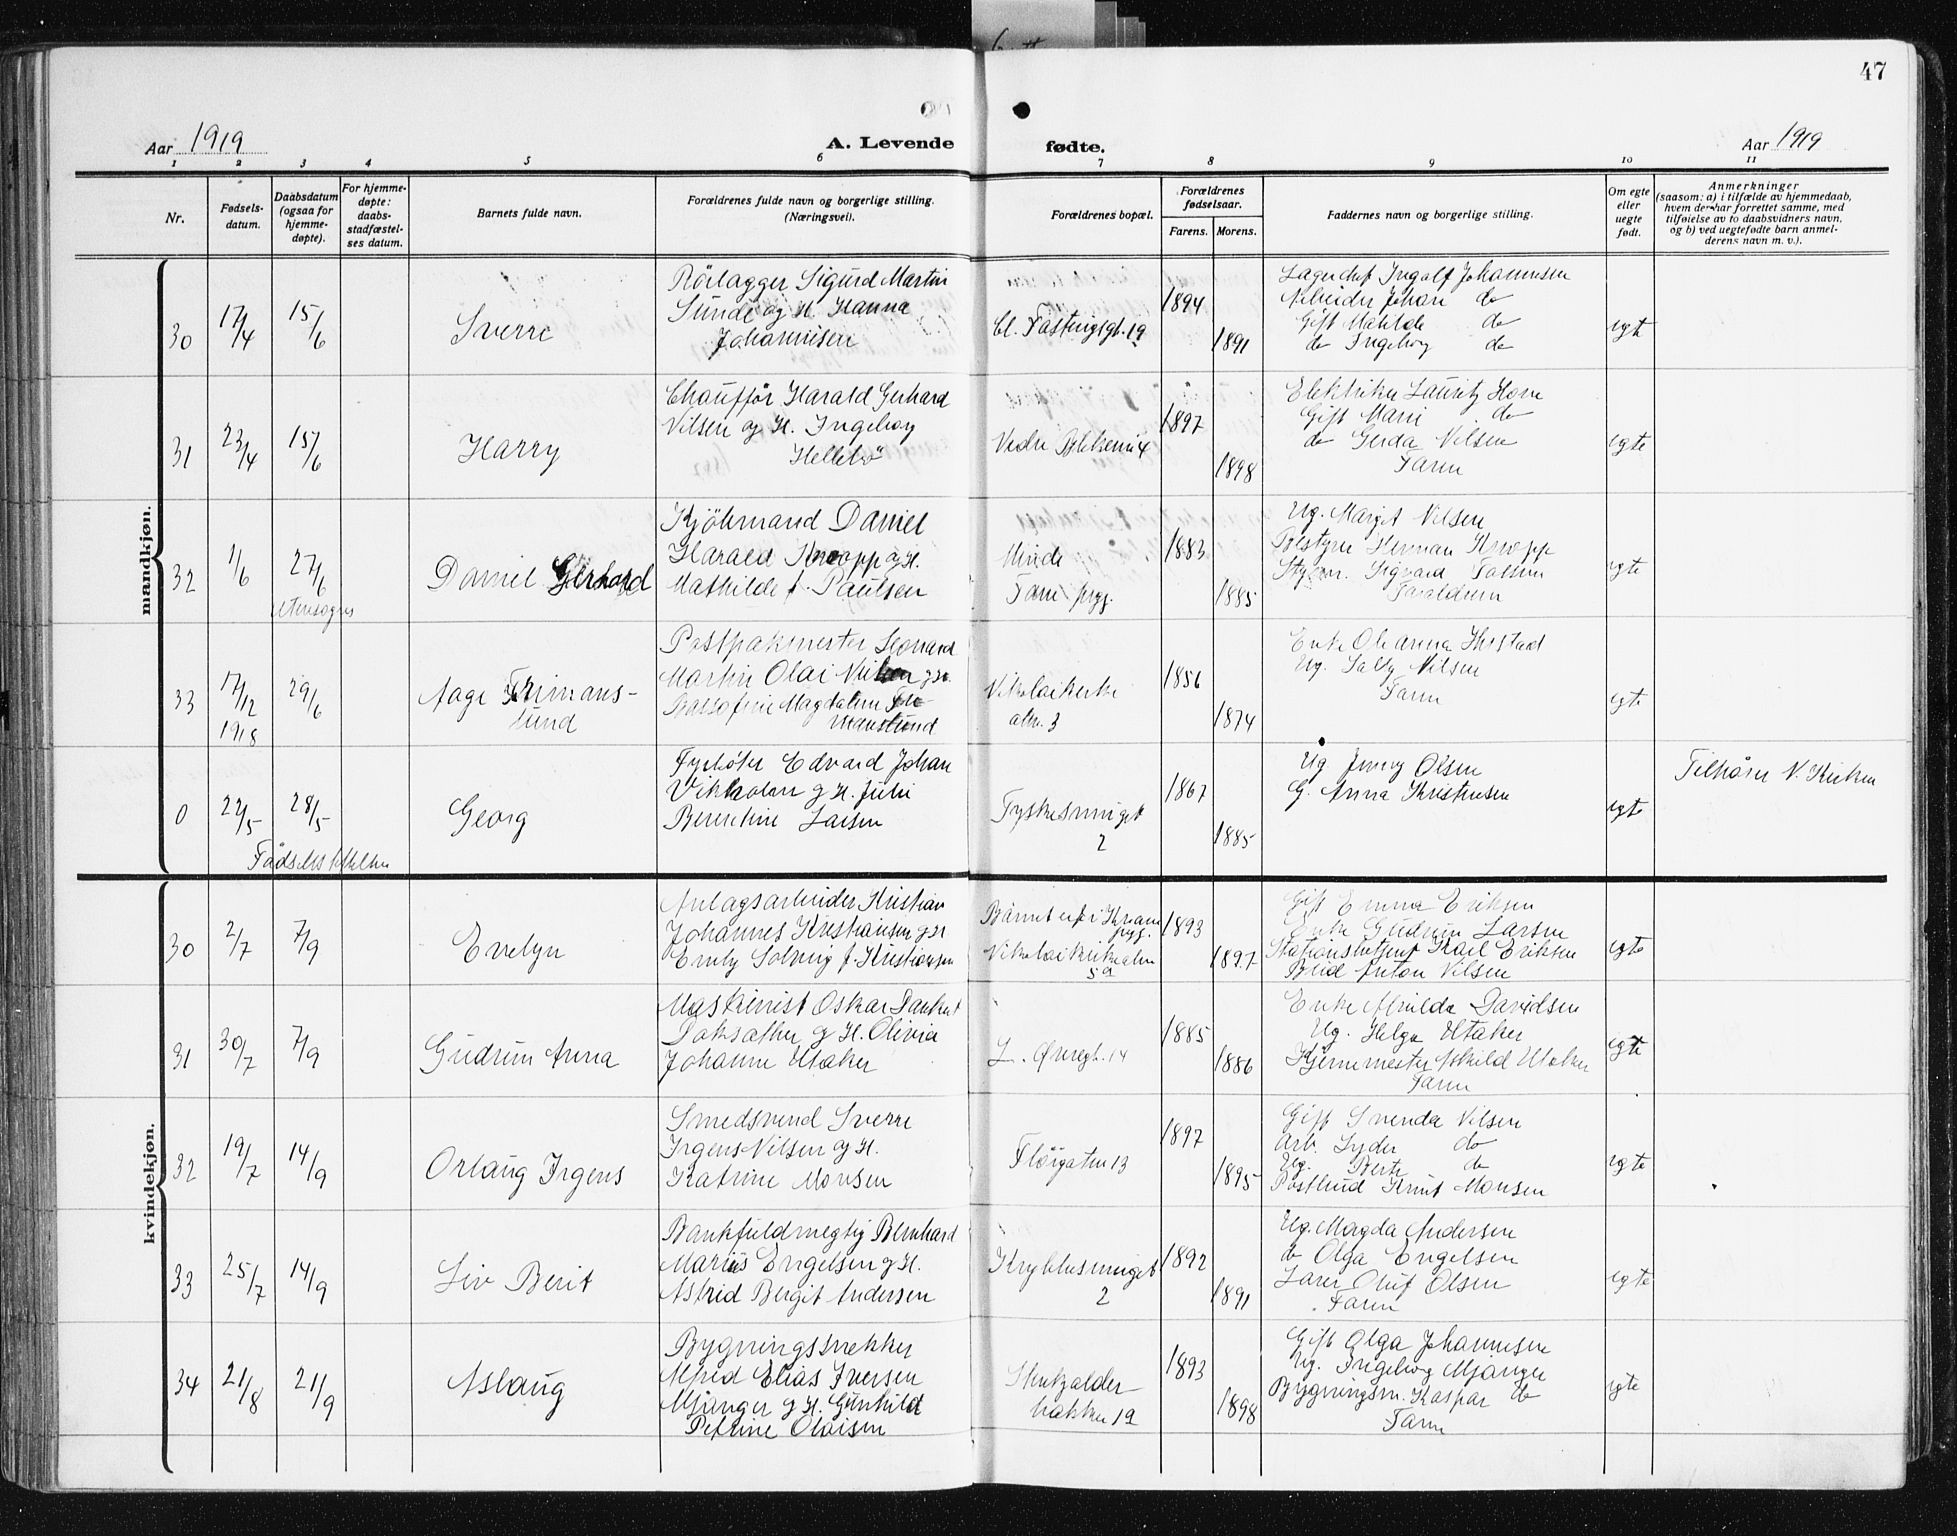 47
Aar 1919
A. Levende
fødte.
Aar 1919
1 2 3 4 5 6 7 8 9 10 11
Nr.
Fødsels-
datum.
Daabsdatum
(ogsaa for
hjemme-
døpte).
For hjemme-
døpte:
daabs-
stadfæstel-
ses datum.
Barnets fulde navn.
Forældrenes fulde navn og borgerlige stilling.
(Næringsvei).
Forældrenes bopæl.
Forældrenes
fødselsaar.
Farens. Morens.
Faddernes navn og borgerlige stilling.
Om egte
eller
uegte
født.
Anmerkninger
(saasom: a) i tilfælde av hjemmedaab,
hvem der har forrettet samme, med
tilføielse av to daabsvidners navn,
og b) ved uegtefødte barn anmel-
derens navn m. v.).
mandkjøn.
30
17/4
15/6
Sverre
Rörlægger Sigurd Martin
Sunde og H. Hanna
Johannesen
Cl. Fastingsgt. 19
1894
1891
Lagerchef Ingolf Johannesen
Arbeider Johan do
Gift Matilde do
do Ingeborg do
egte
31
23/4
15/6
Harry
Chauffør Harald Gerhard
Nilsen og H. Ingeborg
Hellebö
1897
1898
Elektriker Lauritz Horn
Gift Marie do
do Gerda Nilsen
Faren
egte
32
1/6
27/6
utensogns
Daniel Gerhard
Kjöbmand Daniel
Harald Knoopp og H.
Mathilde f. Paulsen
Minde
Fane præg.
1883
1885
Ug. Margit Nilsen
Bestyrer Herman Knopp
Forældrene
egte
33
17/12
1918
29/6
Aage Frimans-
lund
Postpakmester Leonard
Martin Olai Nilsen og H.
Magdalene Fri-
manslund
Nikolaikirke
alm. 3
1856
1874
Enke Oleanna
Ug. Sally Nilsen
Faren
egte
0
22/5
28/5
Fødselsstiftelsen
Georg
Fyrbøter Edvard Johan
Vikholm og H. Juli
Berentine Larsen
Tyskesmuget
2
1867
1885
Ug Jenny Olsen
G. Anna Kristensen
egte
Tilhører N. Kirken
kvindekjøn.
30
2/7
7/9
Evelyn
Anlagsarbeider Kristian
Johannes Kristiansen og H
Emly Solveig f. Kristiansen
Nikolaikirkealm
5a
1893
1897
Gift Emma Eriksen
Enke Gudrun Larsen
Stationsbetjent Karl Eriksen
Bud Anton Nilsen
egte
31
30/7
7/9
Gudrun Anna
Maskinist Oskar Dankert
Toksather og H. Olivia
Johanne Utaker
L. Øvregt. 14
1885
1886
Enke Alvilda Davidsen
Ug. Helga Utaker
Askild Utaker
Faren
egte
32
19/7
14/9
Orlaug Irgens
Smedsvend Sverre
Irgens Nilsen og H.
Katrine Monsen
Fløigaten 13
1897
1895
Gift Svenda Nilsen
Arb. Lyder do
Ug. Berte do
Postbud Knut Monsen
egte
33
25/7
14/9
Liv Berit
Bankfuldmegtig Bernhard
Marius Engelsen og H.
Astrid Bergit Andersen
Kryblesmuget
2
1892
1891
Ug. Magda Andersen
do Olga Engelsen
Lærer Oluf Olsen
Faren
egte
34
21/8
21/9
Aslaug
Bygningssnekker
Alfred Elias Iversen
Mjanger og H. Gunhild
Petrine Olaisen
Skutzalder-
bakken 19
1893
1898
Gift Olga Johannesen
Ug. Ingeborg Mjanger
Bygningsm. Kaspar do
Faren
egte